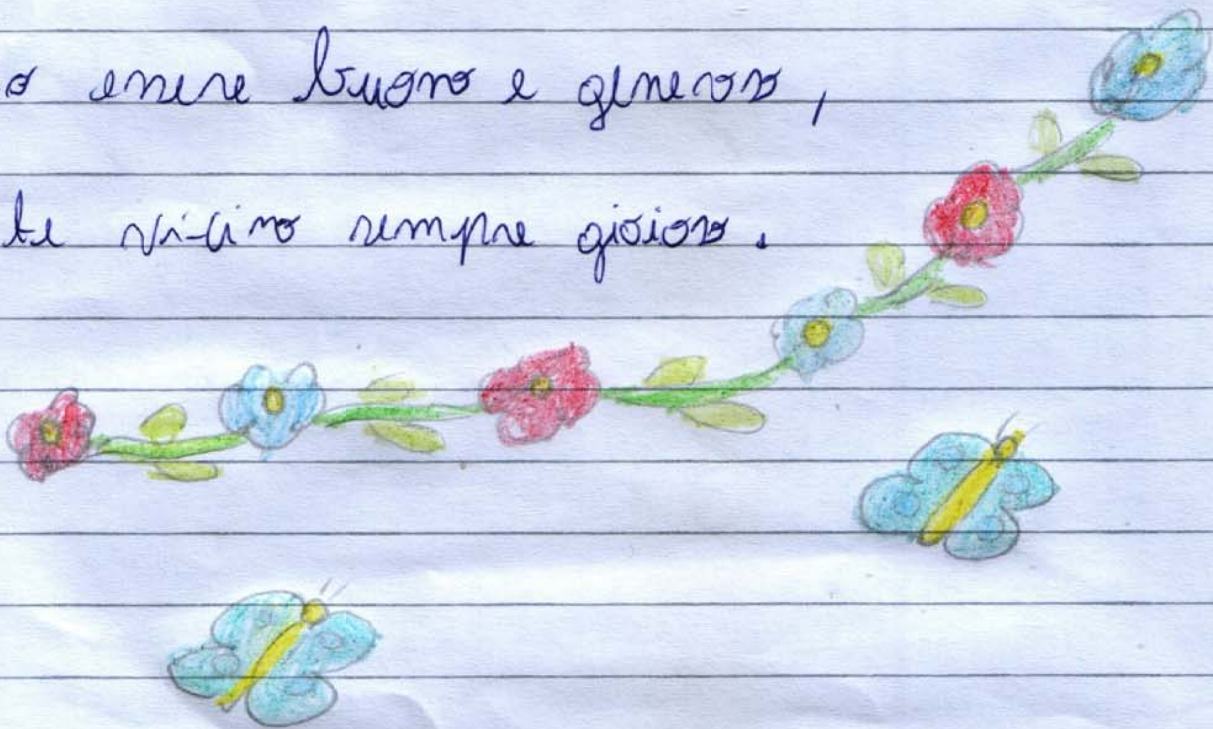 o essere buono e generoso,
te vicino sempre gioioso.